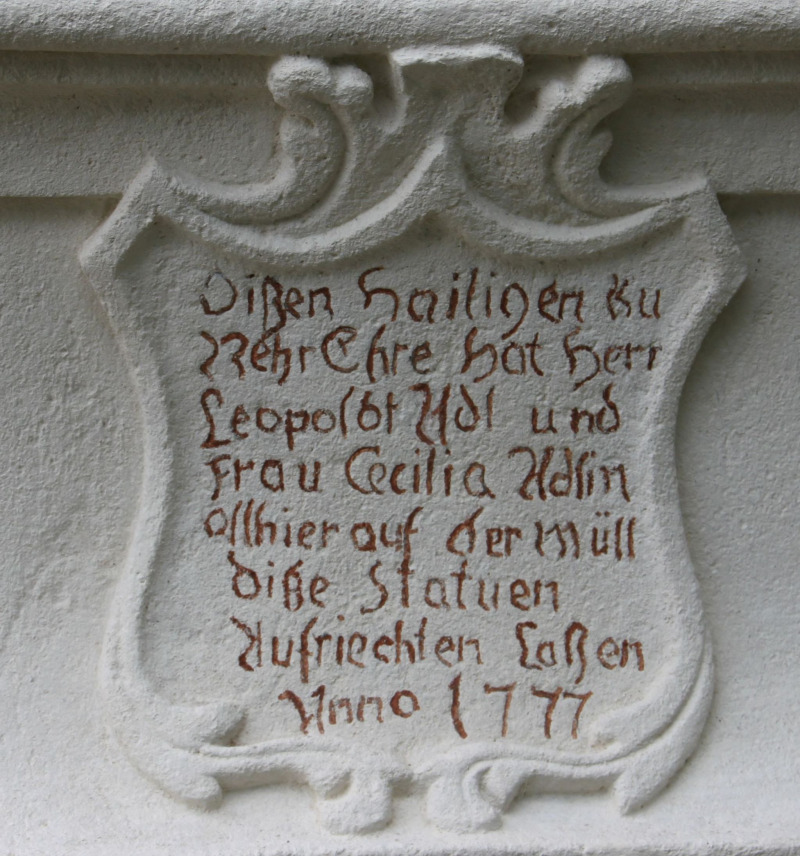 Dißen Hailigen Zu
Mehr Ehre Hat Herr
Leopoldt Adl und
Frau Cecilia Adlin
allhier auf der Müll
diße Statuen
Aufriechten Laßen
Anno 1777